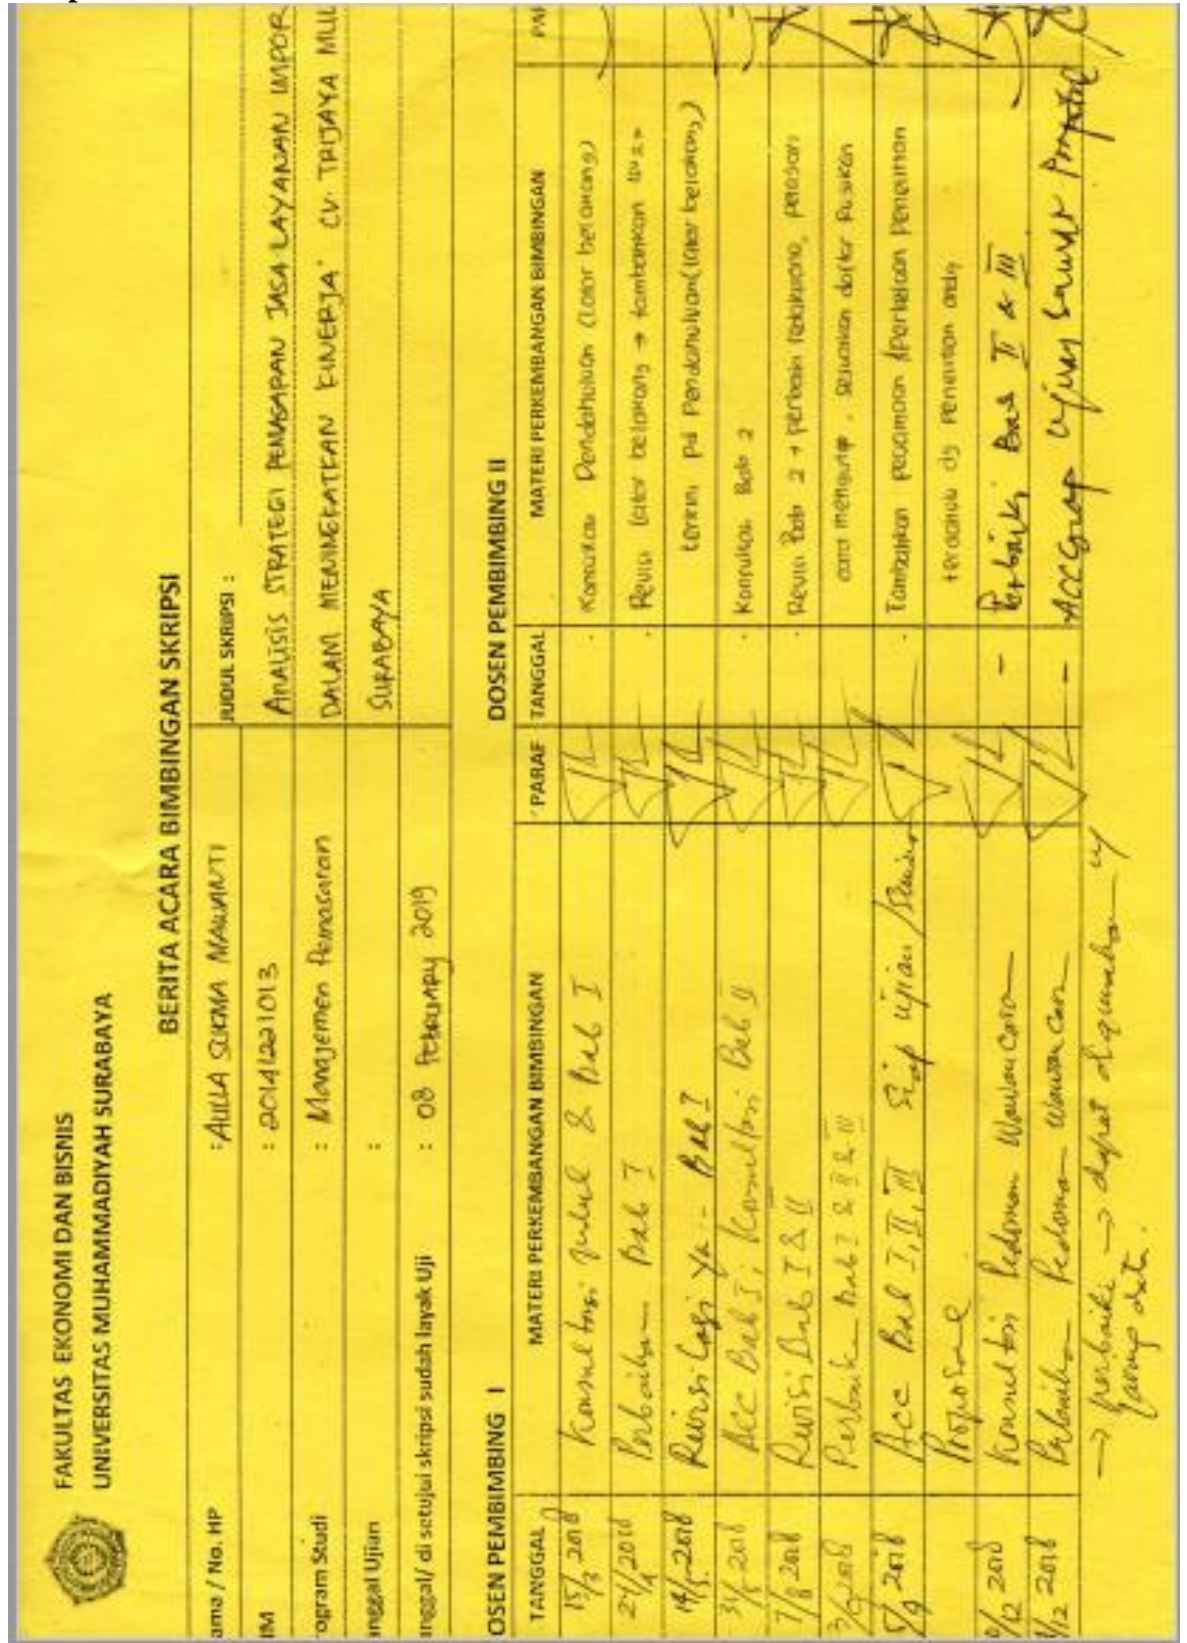 FAKULTAS EKONOMI DAN BISNIS
UNIVERSITAS MUHAMMADIYAH SURABAYA
BERITA ACARA BIMBINGAN SKRIPSI
ama / No. HP : AULIA SUKMA
IM : 20141221013
ogram Studi : Manajemen Pemasaran
anggal Ujian :
anggal/ di setujui skripsi sudah layak Uji : 08 FEBRUARY 2019
JUDUL SKRIPSI :
ANALISIS STRATEGI JASA LAYANAN IMPOR
DALAM MENINGKATKAN KINERJA CV. TRIJAYA MUL
SURABAYA
OSEN PEMBIMBING I
TANGGAL MATERI PERKEMBANGAN BIMBINGAN PARAF
15/3 2018 Konsultasi judul & Bab I
24/4 2018 Perbaikan Bab I
14/5 2018 Revisi Lagi Bab I
31/5 2018 ACC Bab I; Konsultasi Bab II
7/8 2018 Revisi Bab I & II
3/9 2018 Perbaikan Bab I & II & III
5/9 2018 Acc Bab I, II, III Siap Ujian / Seminar
Proposal
/12 2018 Konsultasi Pedoman Wawancara
/12 2018 Perbaikan Pedoman Wawancara
→ perbaiki → dapat digunakan
data.
DOSEN PEMBIMBING II
TANGGAL MATERI PERKEMBANGAN BIMBINGAN PAR
Konsultasi Pendahuluan (latar belakang)
Revisi latar belakang → tambahkan
pd Pendahuluan (latar belakang)
Konsultasi Bab 2
Revisi Bab 2 + perbaiki
cara mengutip, sesuaikan daftar pustaka
Tambahkan persamaan & perbedaan penelitian
terdahulu dg penelitian anda
Perbaiki Bab II & III
ACC Siap Ujian Seminar Proposal